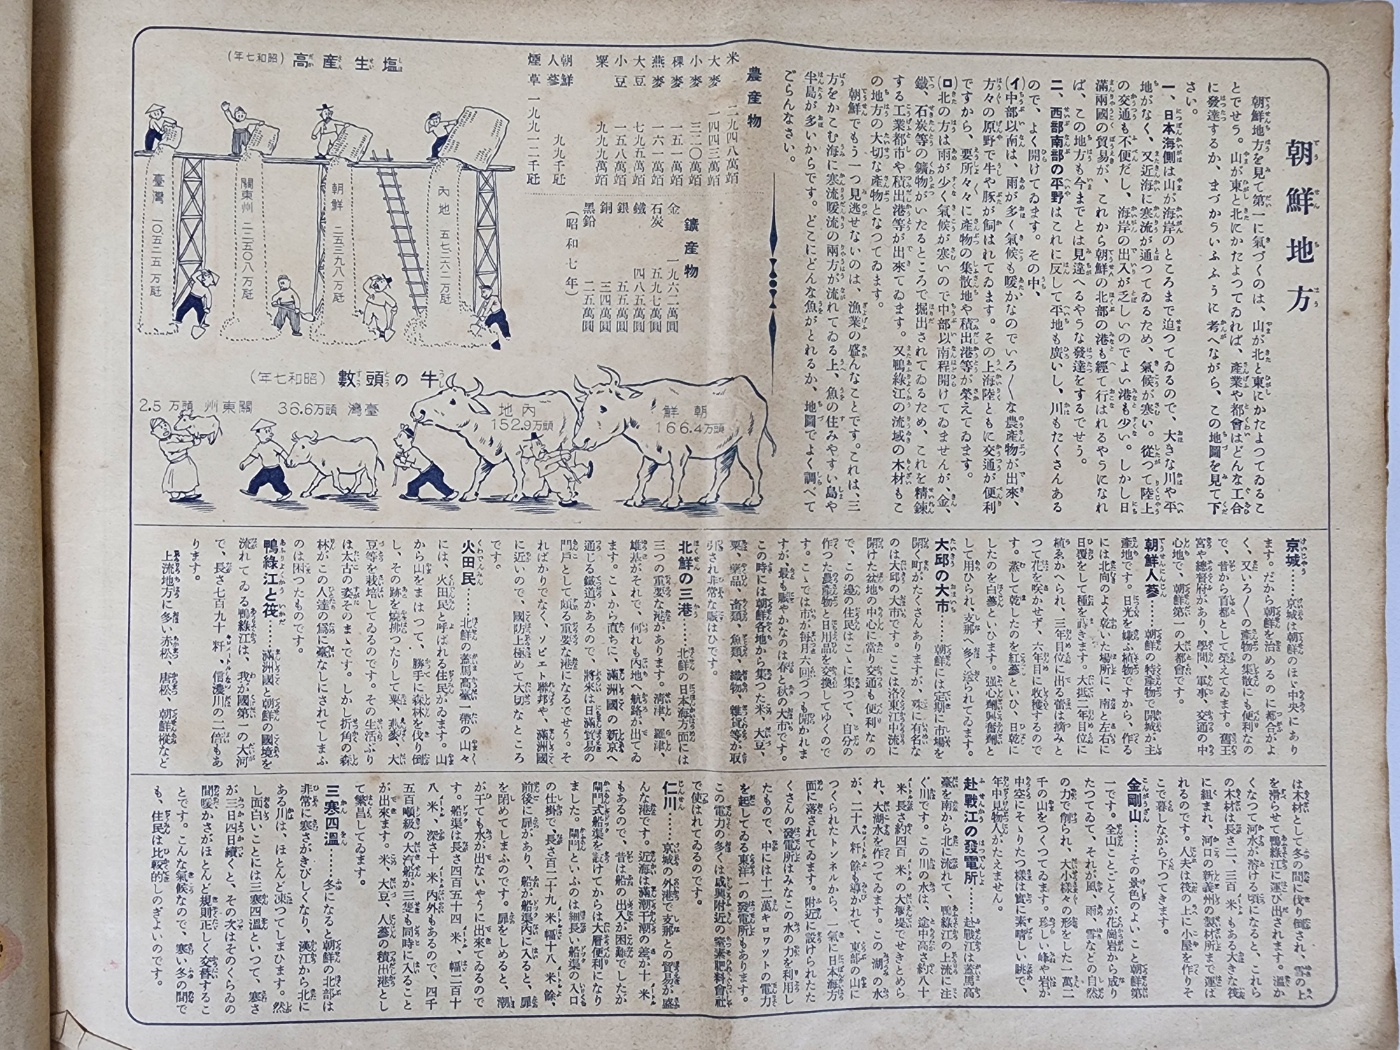 朝鮮地方
朝鮮地方を見て第一に氣づくのは、山が北と東にかたよつてゐるこ
とでせう。山が東と北にかたよつてゐれば、產業や都會はどんな工合
に發達するか、まづかういふふうに考へながら、この地圖を見て下
さい。
一、日本海側は山が海岸のところまで迫つてゐるので、大きな川や平
地がなく、又近海に寒流が通つてゐるため、氣候が寒い。從つて陸上
の交通も不便だし、海岸の出入が乏しいのでよい港も少い。しかし日
滿兩國の貿易が、これから朝鮮の北部の港も經て行はれるやうになれ
ば、この地方も今までとは見違へるやうな發達をするでせう。
二、西部南部の平野はこれに反して平地も廣いし、川もたくさんある
ので、よく開けてゐます。その中、
(イ)中部以南は、雨が多く氣候も暖かなのでいろ〱な農產物が出來、
方々の原野で牛や豚が飼はれてゐます。その上海陸ともに交通が便利
ですから、要所々々に產物の集散地や積出港等が榮えてゐます。
(ロ)北の方は雨が少く氣候が寒いので中部以南程開けてゐませんが、金、
鐵、石炭等の鑛物がいたるところで掘出されてゐるため、これを精鍊
する工業都市や積出港等が出來てゐます。又鴨綠江の流域の木材もこ
の地方の大切な產物となつてゐます。
朝鮮でもう一つ見逃せないのは、漁業の盛んなことです。これは、三
方をかこむ海に寒流暖流の兩方が流れてゐる上、魚の住みやすい島や
半島が多いからです。どこにどんな魚がとれるか、地圖でよく調べて
ごらんなさい。
農產物
米 二九四八萬圓
大麥 一四四三萬圓
小麥 三二〇萬圓
裸麥 一五一萬圓
燕麥 一六一萬圓
大豆 七九五萬圓
小豆 一五八萬圓
粟 九九九萬圓
朝鮮人蔘 九九千瓩
煙草 一九九一二千瓩
鑛產物
金 一九六二萬圓
石炭 五九七萬圓
鐵 四八五萬圓
銀 五五萬圓
銅 三四萬圓
黑鉛 二五萬圓
(昭和七年)
塩生產高 (昭和七年)
內地 五七三六二万瓩
朝鮮 二五三九八万瓩
關東州 二二五〇八万瓩
臺灣 一〇五二五万瓩
牛の頭數 (昭和七年)
朝鮮 166.4万頭
內地 152.9万頭
臺灣 36.6万頭
關東州 2.5万頭
京城……京城は朝鮮のほゞ中央にあり
ます。だから朝鮮を治めるのに都合がよ
く、又いろ〱の產物の集散にも便利なの
で、昔から首都として榮えてゐます。舊王
宮や總督府があり、學問、軍事、交通の中
心地で、朝鮮第一の大都會です。
朝鮮人蔘……朝鮮の特產物で開城が主
產地です。日光を嫌ふ植物ですから、作る
には北向のよく乾いた場所に、南と左右に
日覆をして種を蒔きます。大抵二年目位に
植ゑかへられ、三年目位に出る蕾は摘みと
つて花を咲かせず、六年目に收穫するので
す。蒸して乾したのを紅蔘といひ、日乾に
したのを白蔘といひます。强心興奮劑と
して用ひられ、支那へ多く送られてゐます。
大邱の大市……朝鮮には定期に市場を
開く町がたくさんありますが、殊に有名な
のは大邱の大市です。ここは洛東江中流に
開けた盆地の中心に當り交通も便利なの
で、この邊の住民はこゝに集つて、自分の
作つた農產物と日用品を交換してゆくので
す。こゝでは市が每月六回づつも開かれま
すが、最も賑やかなのは春と秋の大市です。
この時には朝鮮各地から集つた米、大豆、
粟、藥品、畜類、魚類、織物、雜貨等が取
引され非常な賑はひです。
北鮮の三港……北鮮の日本海方面には
三つの重要な港があります。淸津、羅津、
雄基がそれで、何れも內地へ航路が出てゐ
ます。こゝから直ちに、滿洲國の新京へ
通じる鐵道があるので、將來は日滿貿易の
門戶として頗る重要な港になるでせう。そ
ればかりでなく、ソビエト聯邦や、滿洲國
に近いので、國防上極めて大切なところ
です。
火田民……北鮮の蓋馬高臺一帶の山々
には、火田民と呼ばれる住民がゐます。山
から山をまはつて、勝手に森林を伐り倒
し、その跡を燒拂つたりして粟、燕麥、大
豆等を栽培してゐるのです。その生活ぶり
は太古の姿そのまゝです。しかし折角の森
林がこの人達の爲臺なしにされてしまふ
のは困つたものです。
鴨綠江と筏……滿洲國と朝鮮の國境を
流れてゐる鴨綠江は、我が國第一の大河
で、長さ七百九十粁、信濃川の二倍もあ
ります。
上流地方に多い赤松、唐松、朝鮮樅など
は木材として冬の間に伐り倒され、雪の上
を滑らせて鴨綠江に運び出されます。溫か
くなつて河水が溶ける頃になると、これら
の木材は長さ二、三百米もある大きな筏
に組まれ、河口の新義州の製材所まで運ば
れるのです。人夫は筏の上に小屋を作りそ
こで暮しながら下つてきます。
金剛山……その景色のよいこと朝鮮第
一です。全山ことごとくが花崗岩から成り
たつてゐて、それが風、雨、雪などの自然
の力で削られ、大小樣々の形をした一萬二
千の山をつくつてゐます。珍しい峰や岩が
中空にそゝりたつ樣は實に素晴しい眺で、
年中見物人がたえません。
赴戰江の發電所……赴戰江は蓋馬高
臺を南から北に流れて、鴨綠江の上流に注
ぐ川です。この川の水は、途中高さ約八十
米、長さ約四百米の大堰堤でせきとめら
れ、大湖水を作つてゐます。この湖の水
が、二十八粁餘も導かれて、東部の山に
つくられたトンネルから、一氣に日本海方
面に落されてゐます。附近に設けられたた
くさんの發電所はみなこの水の力を利用し
たもので、中には十二萬キロワットの電力
を起してゐる東洋一の發電所もあります。
この電力の多くは咸興附近の窒素肥料會社
で使はれてゐるのです。
仁川……京城の外港で支那との貿易が盛
んな港です。近海は滿潮干潮の差が十米
もあるので、昔は船の出入が困難でしたが
閘門式船渠を設けてからは大層便利になり
ました。閘門といふのは細長い船渠の入口
の仕掛で、長さ百二十九米、幅十八米餘、
前後に扉があり、船が船渠內に入ると、扉
を閉めてしまふのです。扉をしめると、潮
が干ても水が出ないやうに出來てゐるので
す。船渠は長さ四百五十四米、幅二百十
八米、深さ十米內外もあるので、四千
五百噸級の大汽船が三隻も同時に入ること
が出來ます。米、大豆、人蔘の積出港とし
て繁昌してゐます。
三寒四溫……冬になると朝鮮の北部は
非常に寒さがきびしくなり、漢江から北に
ある川は、ほとんど凍つてしまひます。然
し面白いことには三寒四溫といつて、寒さ
が三日四日續くと、その次はそのくらゐの
間暖かさがほとんど規則正しく交替するこ
とです。こんな氣候なので、寒い冬の間で
も、住民は比較的しのぎよいのです。